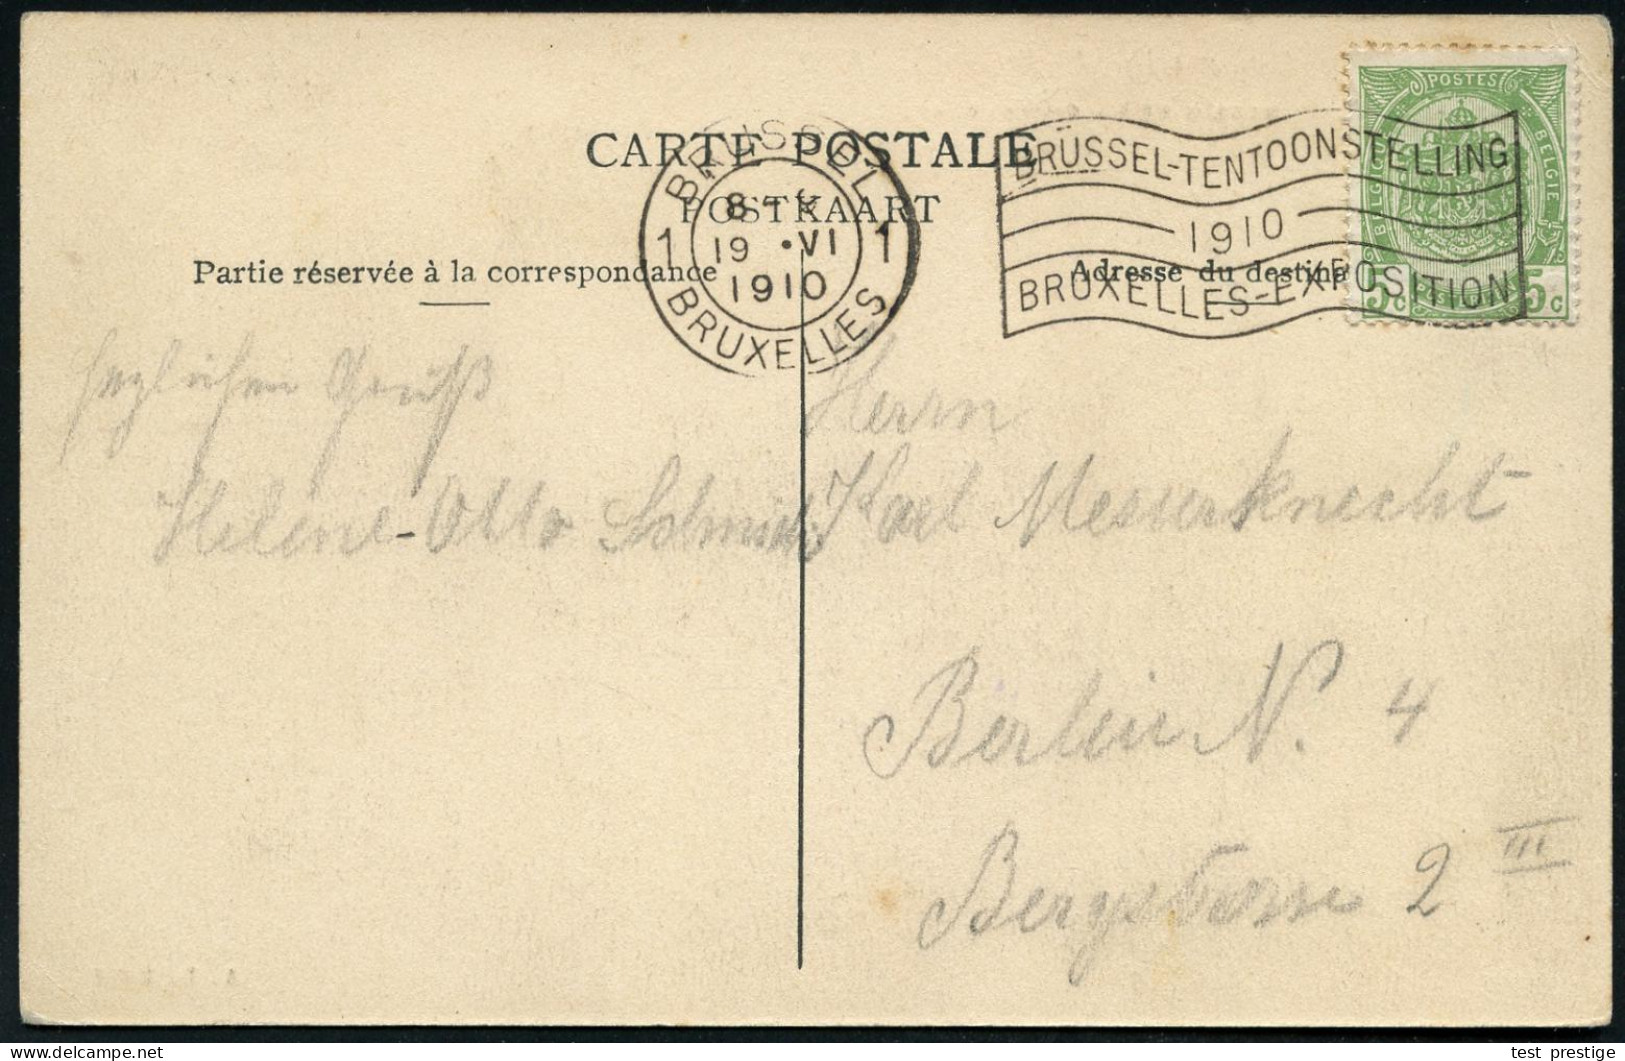 CARTE POSTALE
POSTKAART
Partie réservée à la correspondance
Adresse du destina
BRUSSEL 1
8
19 • VI
1910
1 BRUXELLES
BRUSSEL-TENTOONSTELLING
1910
BRUXELLES-EXPOSITION
POSTES
BELGIQUE
BELGIE
POSTERIJEN
5c
5c
herzlichen Gruß
Helene-Otto Schmidt
Herrn
Karl Messerknecht
Berlin N. 4
Bergstrasse 2 III
test prestige